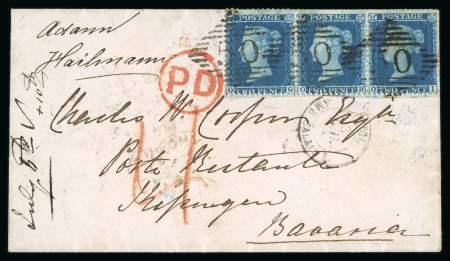 Adam
Hailmann
POSTAGE POSTAGE POSTAGE
TWO PENCE TWO PENCE TWO PENCE
PD
Charles W. Cooper Esqre
Poste Restante
Kissingen
Bavaria
July 8th